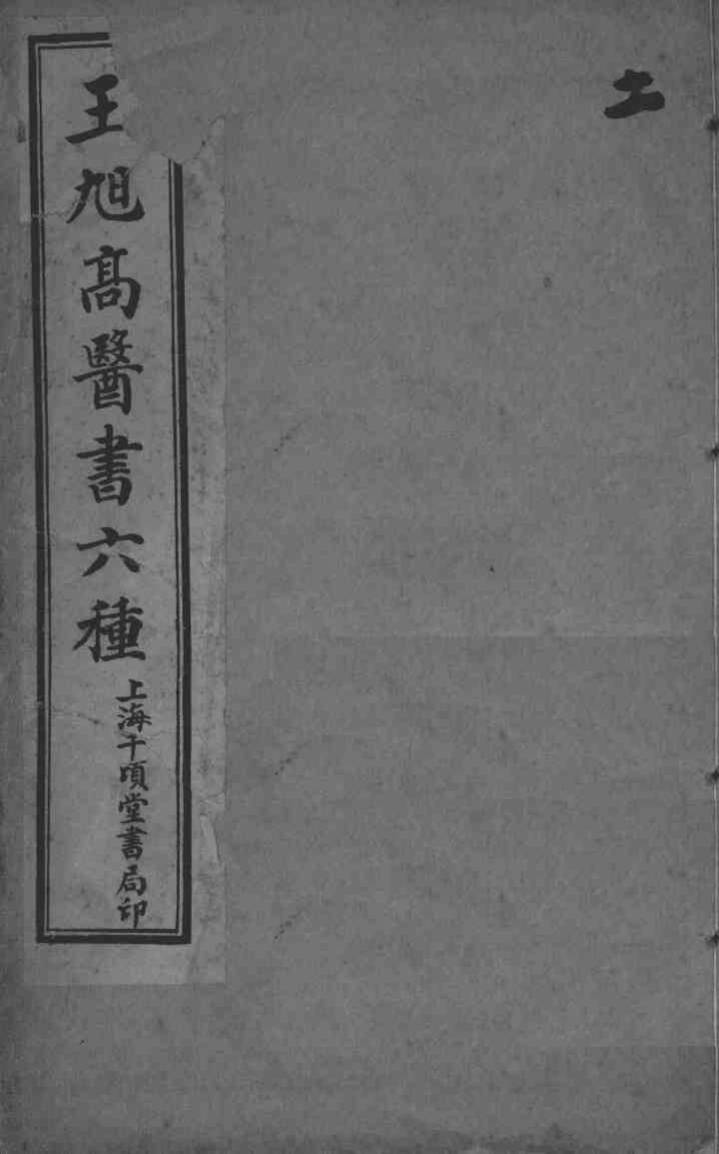 土
王旭高醫書六種
上海千頃堂書局印